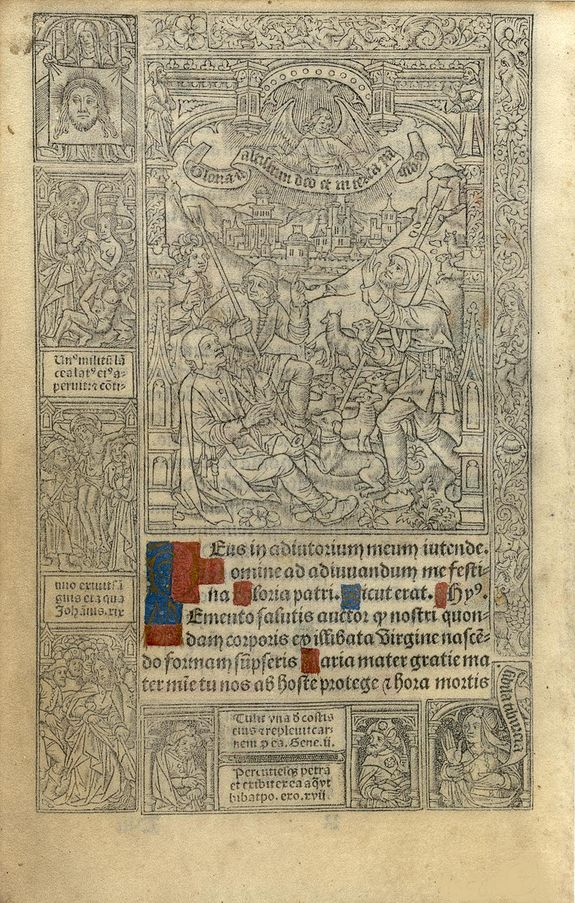 Gloria ī altissimis deo et in terra pax
Vn⁹ militū lā
cea lat⁹ ei⁹ a-
peruit: ⁊ cōti-
nuo exiuit sā
guis et aqua
Johānis. xix
Eus in adiutorium meum intende.
omine ad adiuuandum me festi-
na Gloria patri. Sicut erat. Hy⁹.
Emento salutis auctor ꝙ nostri quon-
dam corporis ex illibata Virgine nascē-
do formam sūpseris Maria mater gratie ma
ter mīe tu nos ab hoste protege ⁊ hora mortis
Tulit vnā d̄ costis
eius ⁊ repleuit car-
nem ꝓ ea. Gene. ii.
Percutiesqꝫ petrā
et exibit ex ea aq̄ vt
bibat po. exo. xvii.